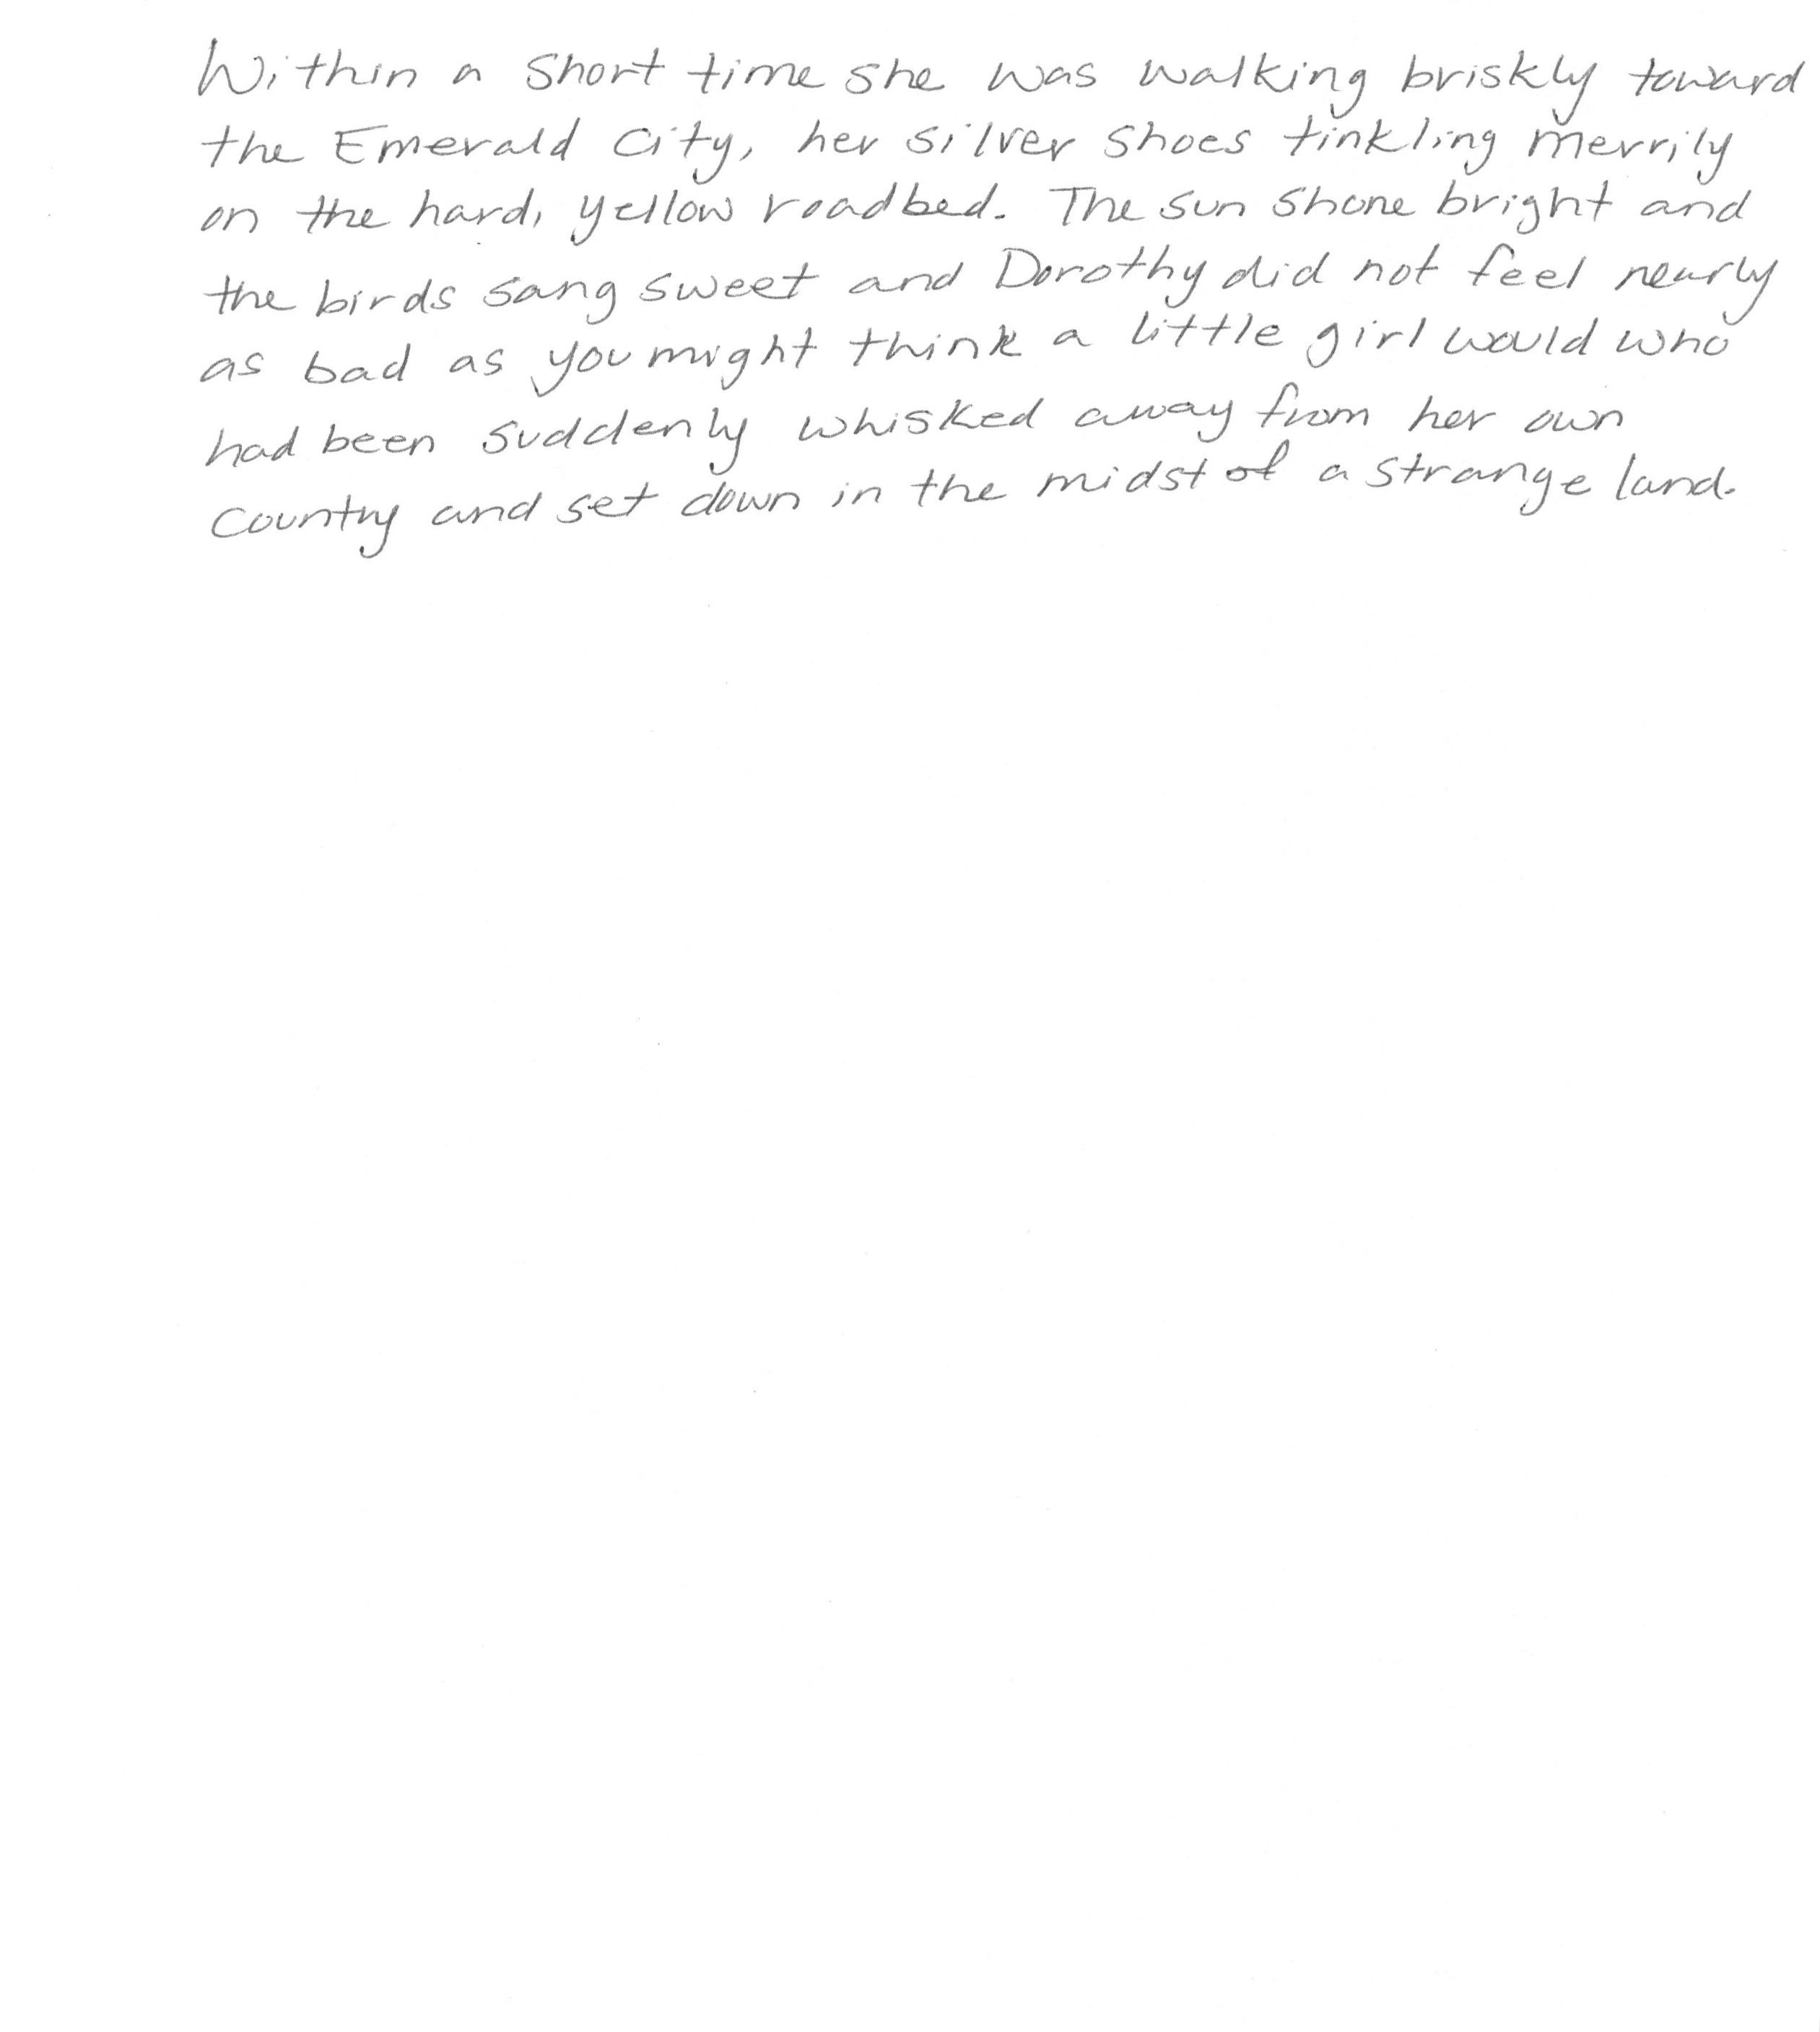 Within a short time she was walking briskly toward
the Emerald City, her silver shoes tinkling merrily
on the hard, yellow roadbed. The sun shone bright and
the birds sang sweet and Dorothy did not feel nearly
as bad as you might think a little girl would who
had been suddenly whisked away from her own
country and set down in the midst of a strange land.